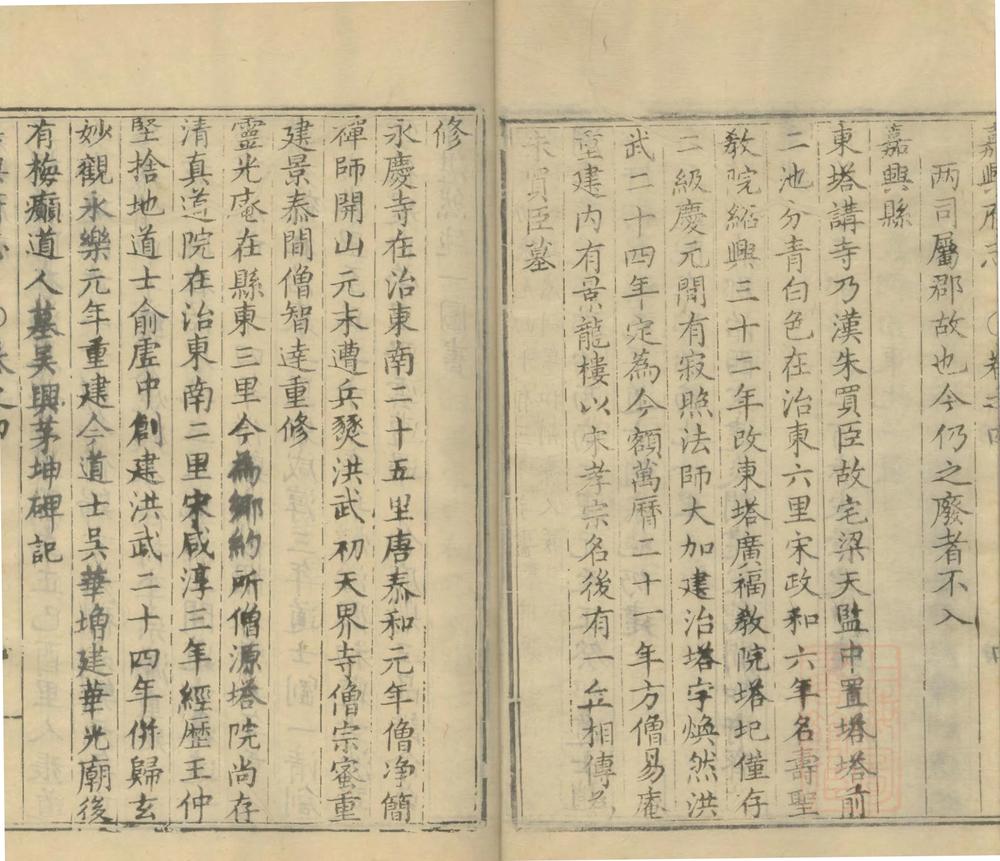 嘉興府志 卷之四
两司屬郡故也今仍之廢者不入
嘉興縣
東塔講寺乃漢朱買臣故宅梁天監中置塔塔前
二池分青白色在治東六里宋政和六年名壽聖
教院紹興三十二年改東塔廣福教院塔圯僅存
二級慶元間有寂照法師大加建治塔宇煥然洪
武二十四年定為今額萬曆二十一年方僧易庵
重建内有景龍樓以宋孝宗名後有一丘相傳爲
朱買臣墓
修
永慶寺在治東南二十五里唐泰和元年僧净簡
禪師開山元末遭兵燹洪武初天界寺僧宗蜜重
建景泰間僧智達重修
靈光庵在縣東三里今為鄉約所僧源塔院尚存
清真道院在治東南二里宋咸淳三年經歷王仲
堅捨地道士俞虛中創建洪武二十四年併歸玄
妙觀永樂元年重建今道士吳華增建華光廟後
有梅癲道人墓吳興茅坤碑記